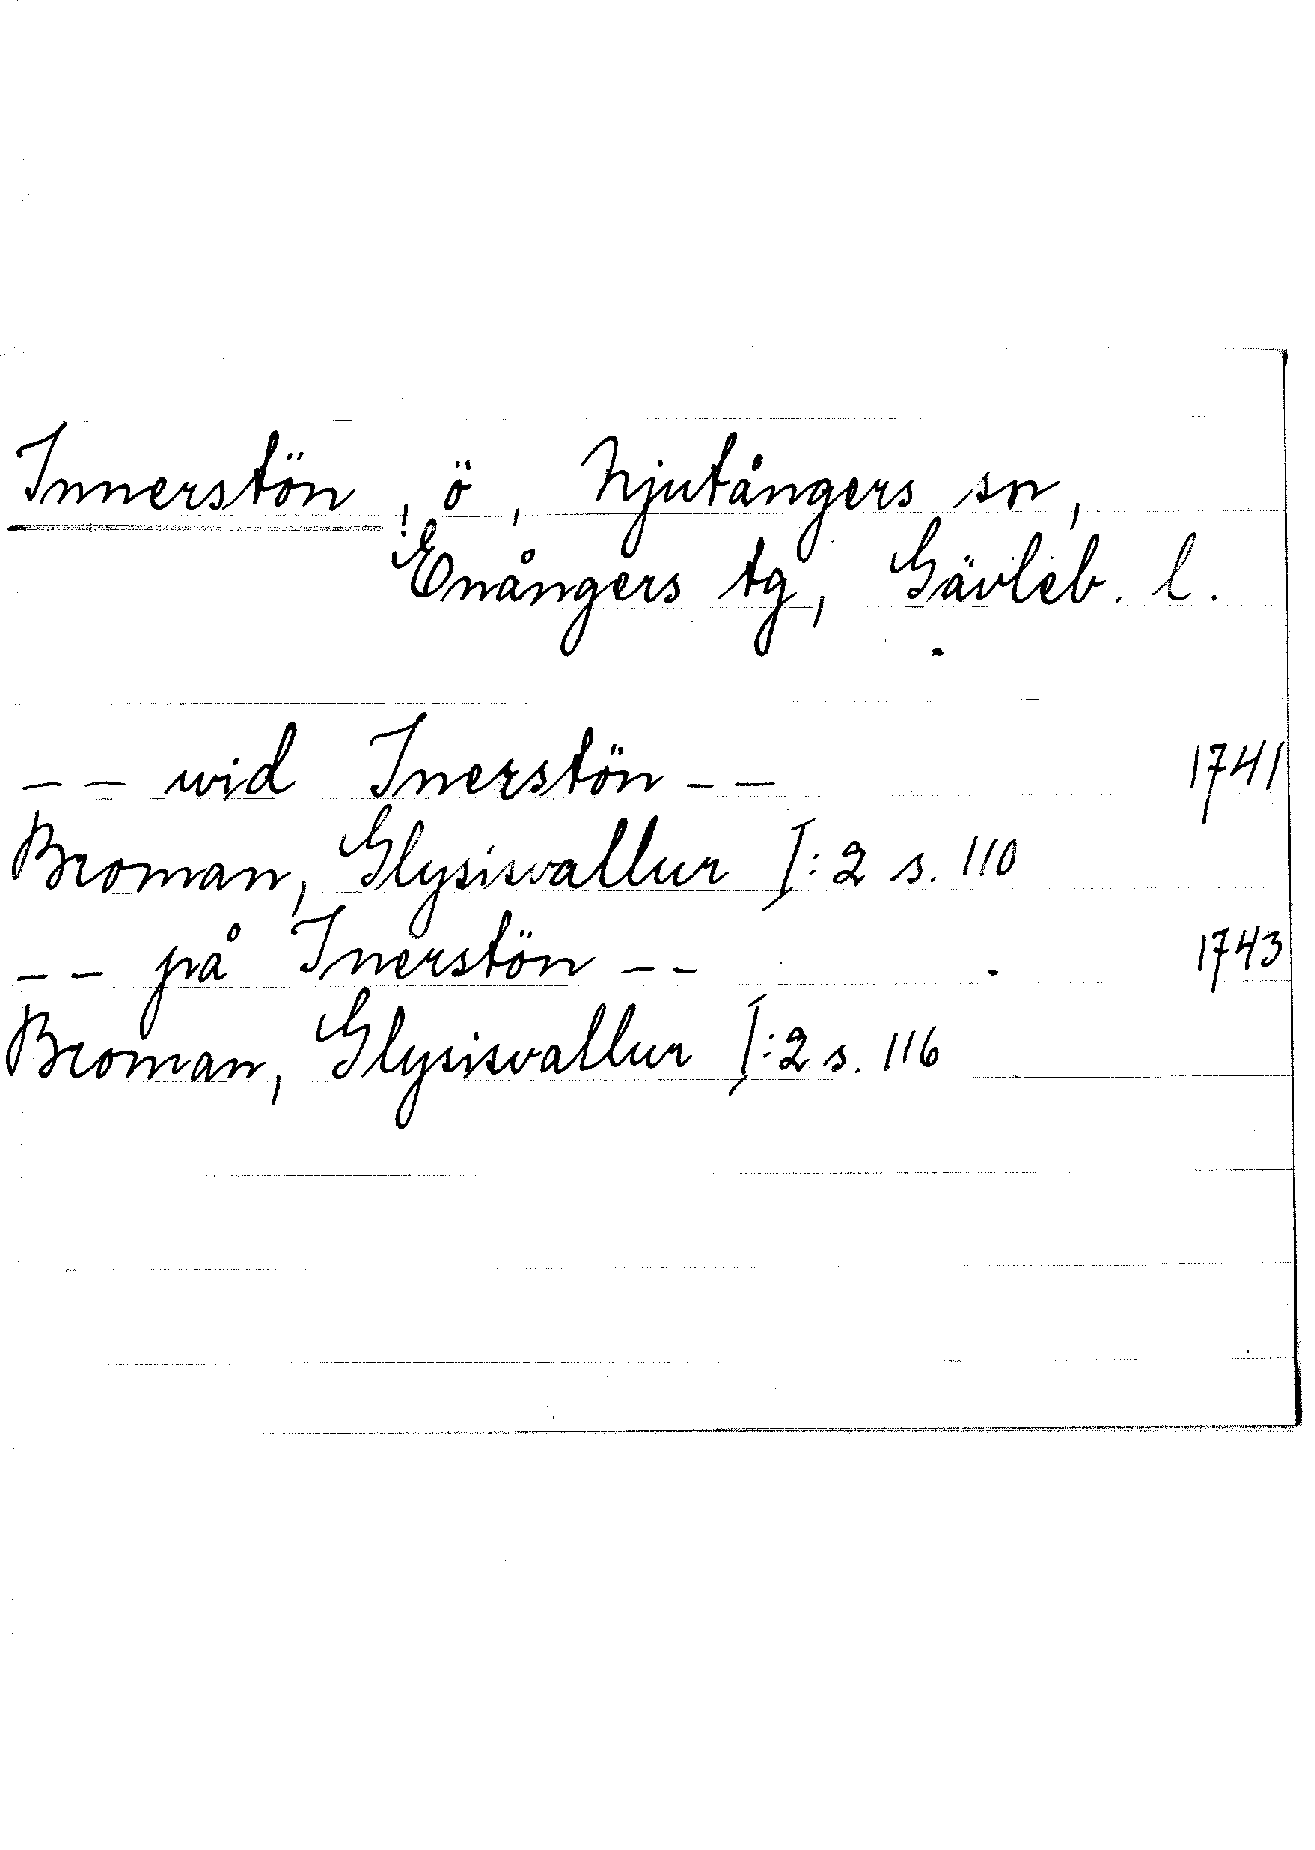 Innerstön, ö, Njutångers sn,
Enångers tg, Gävleb. l.
-- wid Inerstön -- 1741
Broman, Glysisvallur I:2 s. 110
-- på Inerstön -- 1743
Broman, Glysisvallur I:2 s. 116